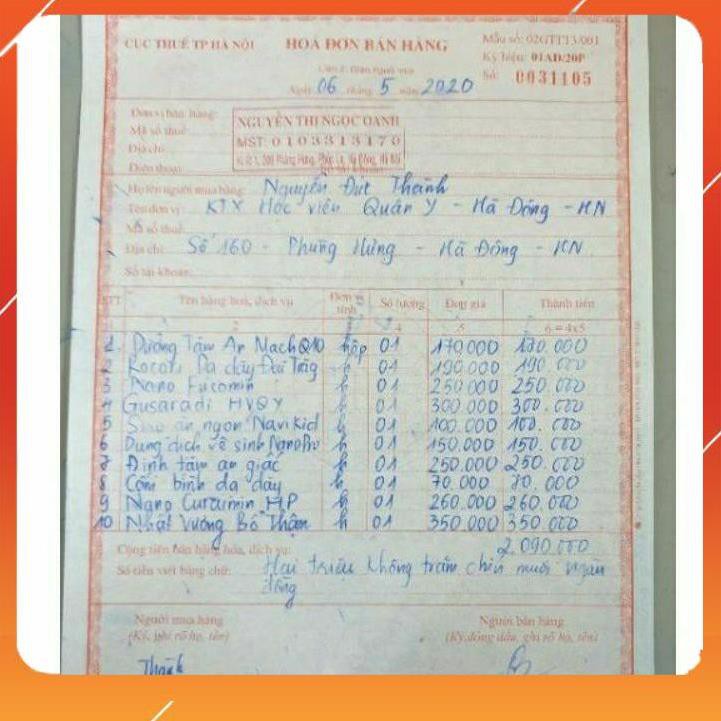 CỤC THUẾ TP HÀ NỘI
HOÁ ĐƠN BÁN HÀNG
Mẫu số: 02GTTT3/001
Ký hiệu: 01AD/20P
Số: 0031105
Ngày 06 tháng 5 năm 2020
Đơn vị bán hàng:
NGUYỄN THỊ NGỌC OANH
Mã số thuế:
MST: 0103313170
Địa chỉ:
Điện thoại:
Họ tên người mua hàng: Nguyễn Đức Thành
Tên đơn vị: KTX Học viện Quân Y - Hà Đông - HN
Mã số thuế:
Địa chỉ: Số 160 - Phùng Hưng - Hà Đông - HN
Số tài khoản:
STT Tên hàng hoá, dịch vụ Đơn vị tính Số lượng Đơn giá Thành tiền
1 2 3 4 5 6 = 4x5
1 Dưỡng Tâm An Mạch Q10 hộp 01 170.000 170.000
2 Kocoti Dạ dày Đại Tràg h 01 190.000 190.000
3 Nano Fucomin h 01 250.000 250.000
4 Gusaradi HVQY h 01 300.000 300.000
5 Siro ăn ngon Navikid h 01 100.000 100.000
6 Dung dịch vệ sinh NanoPro h 01 150.000 150.000
7 Định tâm an giấc h 01 250.000 250.000
8 Cốm bình dạ dày h 01 70.000 70.000
9 Nano Curcumin HP h 01 260.000 260.000
10 Nhất Vương Bổ Thận h 01 350.000 350.000
Cộng tiền bán hàng hóa, dịch vụ: 2.090.000
Số tiền viết bằng chữ: Hai triệu không trăm chín mươi ngàn
đồng
Người mua hàng
(Ký, ghi rõ họ, tên)
Người bán hàng
(Ký, đóng dấu, ghi rõ họ, tên)
Thành